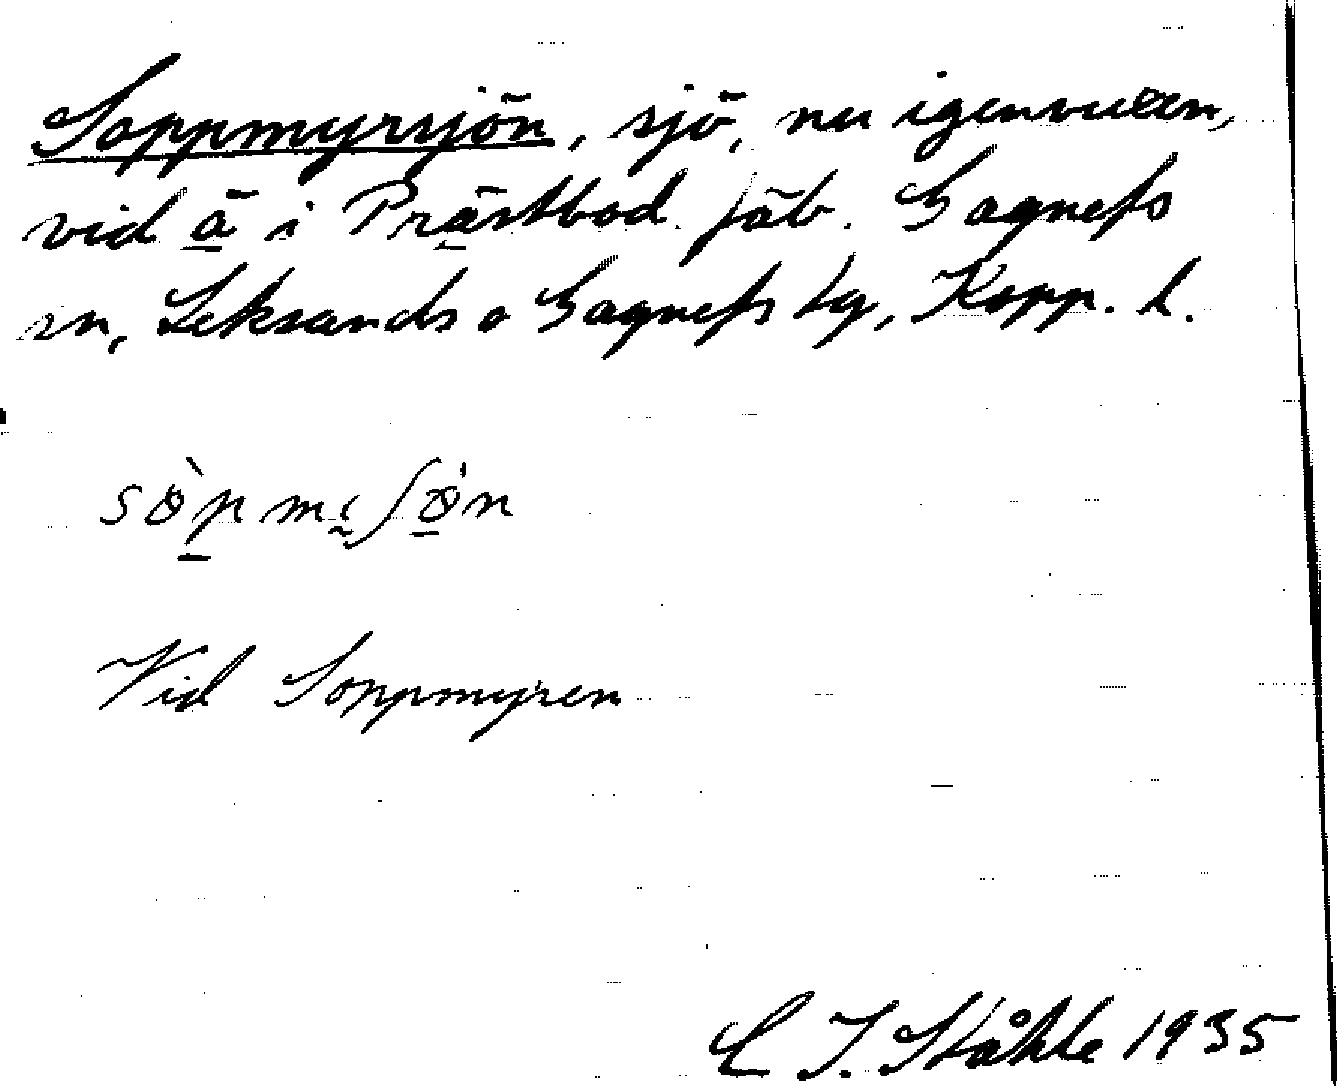 Soppmyrsjön, sjö, nu igenvuxen,
vid ä i Prästbod. fäb. Gagnefs
sn, Leksands o Gagnefs tg, Kopp. l.
Vid Soppmyren
C. I. Ståhle 1935